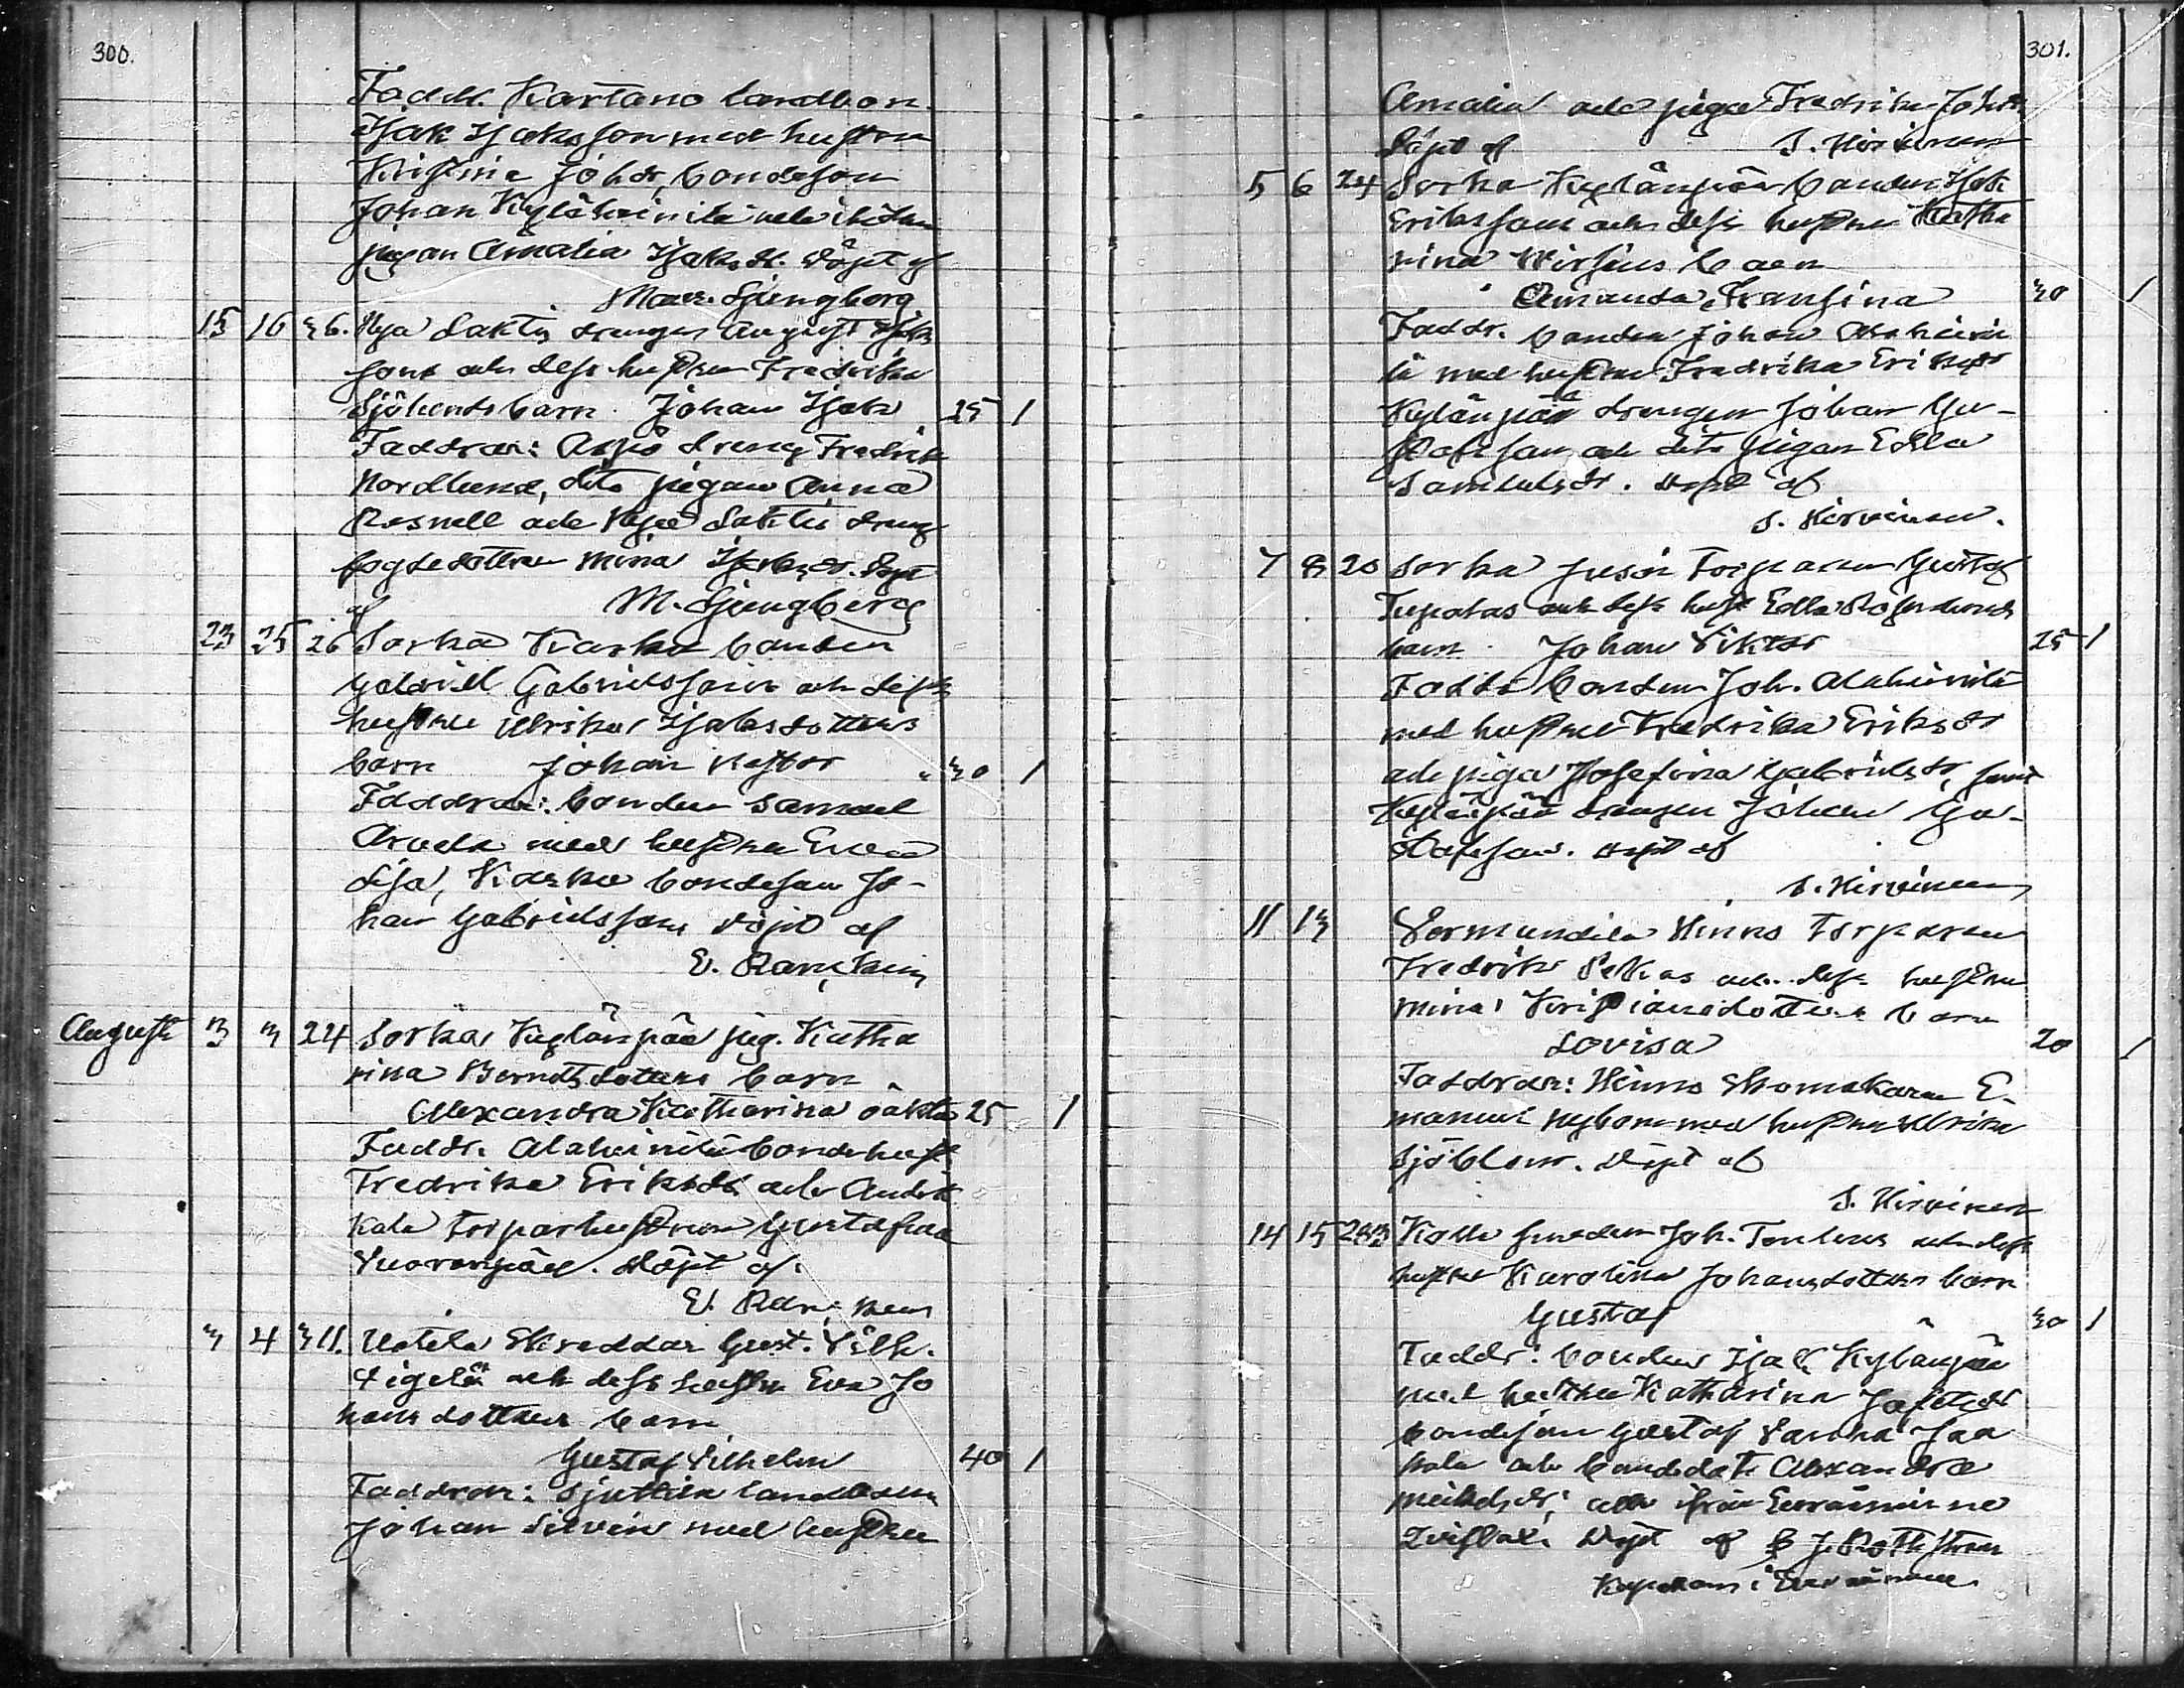 300.
Faddr. Kartano landbon
Isak Isaksson med hustru
Kristina Johdr, bondeson
Johan Kyläheinilä och
pigan Amalia Isaksdr. Döpt af
Mau. Ljungberg
15 16 36. Nya Laktis drengen August Isaks
sons och dess hustru Fredrika
Sjölunds barn. Johan Isak 25 1
Faddrar: Arpis dreng Fredrik
Nordlund, dito pigan Anna
Rosnell och Nya Laktis dreng
fogdedottren Mina Isaksdr. Döpt
af M. Ljungberg
23 25 26 Sorka Karka bonden
Gabriel Gabrielssons och dess
hustru Ulrika Isaksdotters
barn Johan Nestor 30 1
Faddrar: bonden Samuel
Arvela med hustru Eva
Lisa, Karka bondeson Jo-
han Gabrielsson Döpt af
E. Ranken
August 3 3 24 Sorka Kylänpää pig. Katha
rina Berndtsdotters barn
Alexandra Katharina oäkta 25 1
Faddr. Alaheinilä bondehust
Fredrika Eriksdr och Antti
kala torparhustrun Gustafva
Vuorenpää. Döpt af
E. Ranken
3 4 31. Uotila Skreddar Gust. Vilh.
och dess hustru Eva Jo
hansdotters barn
Gustaf Vilhelm 40 1
Faddrar: Sjuttila landbon
Johan Silvin med hustru
301.
Amalia och piga Fredrika Johdr
Döpt af S. Hirvinen
5 6 24 Sorka Kylänpää bonden Isak
Erikssons och dess hustru Katha
rina Wirsens barn
Amanda Fransina 30 1
Faddr. bonden Johan Alaheini
lä med hustru Fredrika Eriksdr
Kylänpää drengen Johan Gu-
stafsson och dito pigan Edla
Samuelsdr. Döpt af
S. Hirvinen.
7 8 20 Sorka Jusin Torparen Gustaf
Tupalas och dess hust Edla Roslunds
barn Johan Viktor 25 1
Faddr bonden Joh. Alaheinilä
med hustru Fredrika Eriksdr
och piga Josefina Gabrielsdr, samt
Kylänpää drengen Johan Gu-
stafsson. Döpt af
S. Hirvinen
11 13 Vermundila Hinno Torparen
Fredrik Pekas och dess hustru
Mina Kristiansdotters barn
Lovisa 20 1
Faddrar: Hinno Skomakaren E-
manuel Nybom med hustru Ulrika
Sjöblom. Döpt af
S. Hirvinen
14 15 243 Kolla smeden Joh. Tenlenius och dess
hustru Karolina Johansdotters barn
Gustaf 30 1
Faddr: bonden Isak Kylänpää
med hustru Katharina Jafetsdr
bondeson Gustaf Vanha Jaa
kola och bondedotr Alexandra
Mikelsdr; alla ifrån Euraåminne
Döpt af F. J. Rothstrom
Kapellan i Euraåminne